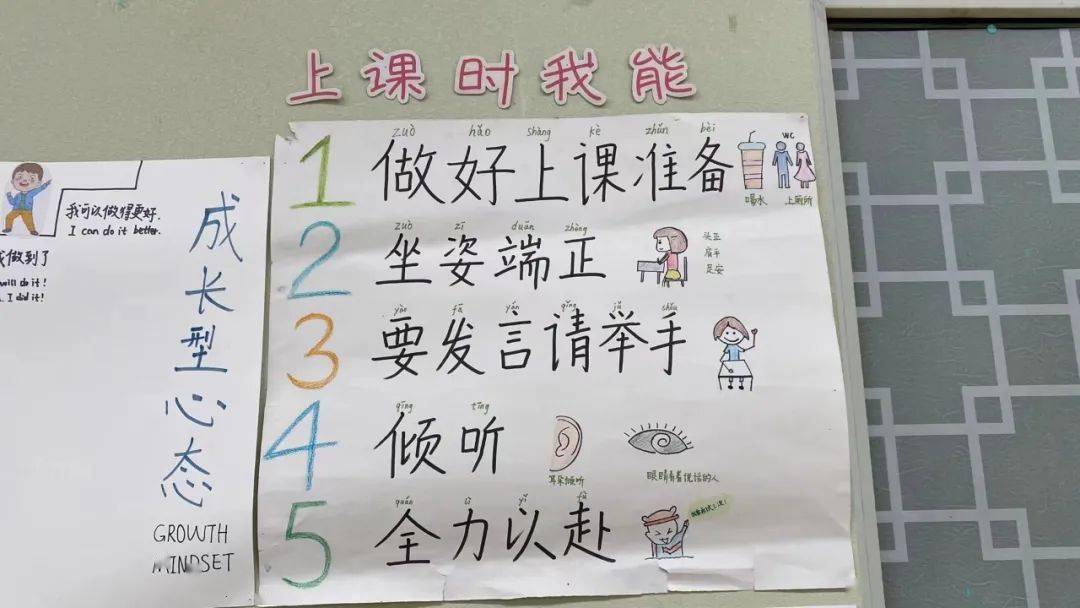 上课时我能
zuò hǎo shàng kè zhǔn bèi
1 做好上课准备
WC
喝水 上厕所
zuò zī duān zhèng
2 坐姿端正
头正
肩平
足安
yào fā yán qǐng jǔ shǒu
3 要发言请举手
qīng tīng
4 倾听
耳朵倾听
眼睛看着说话的人
quán lì yǐ fù
5 全力以赴
我可以做得更好.
I can do it better.
做到了
will do it!
I did it!
成长型心态
GROWTH
MINDSET